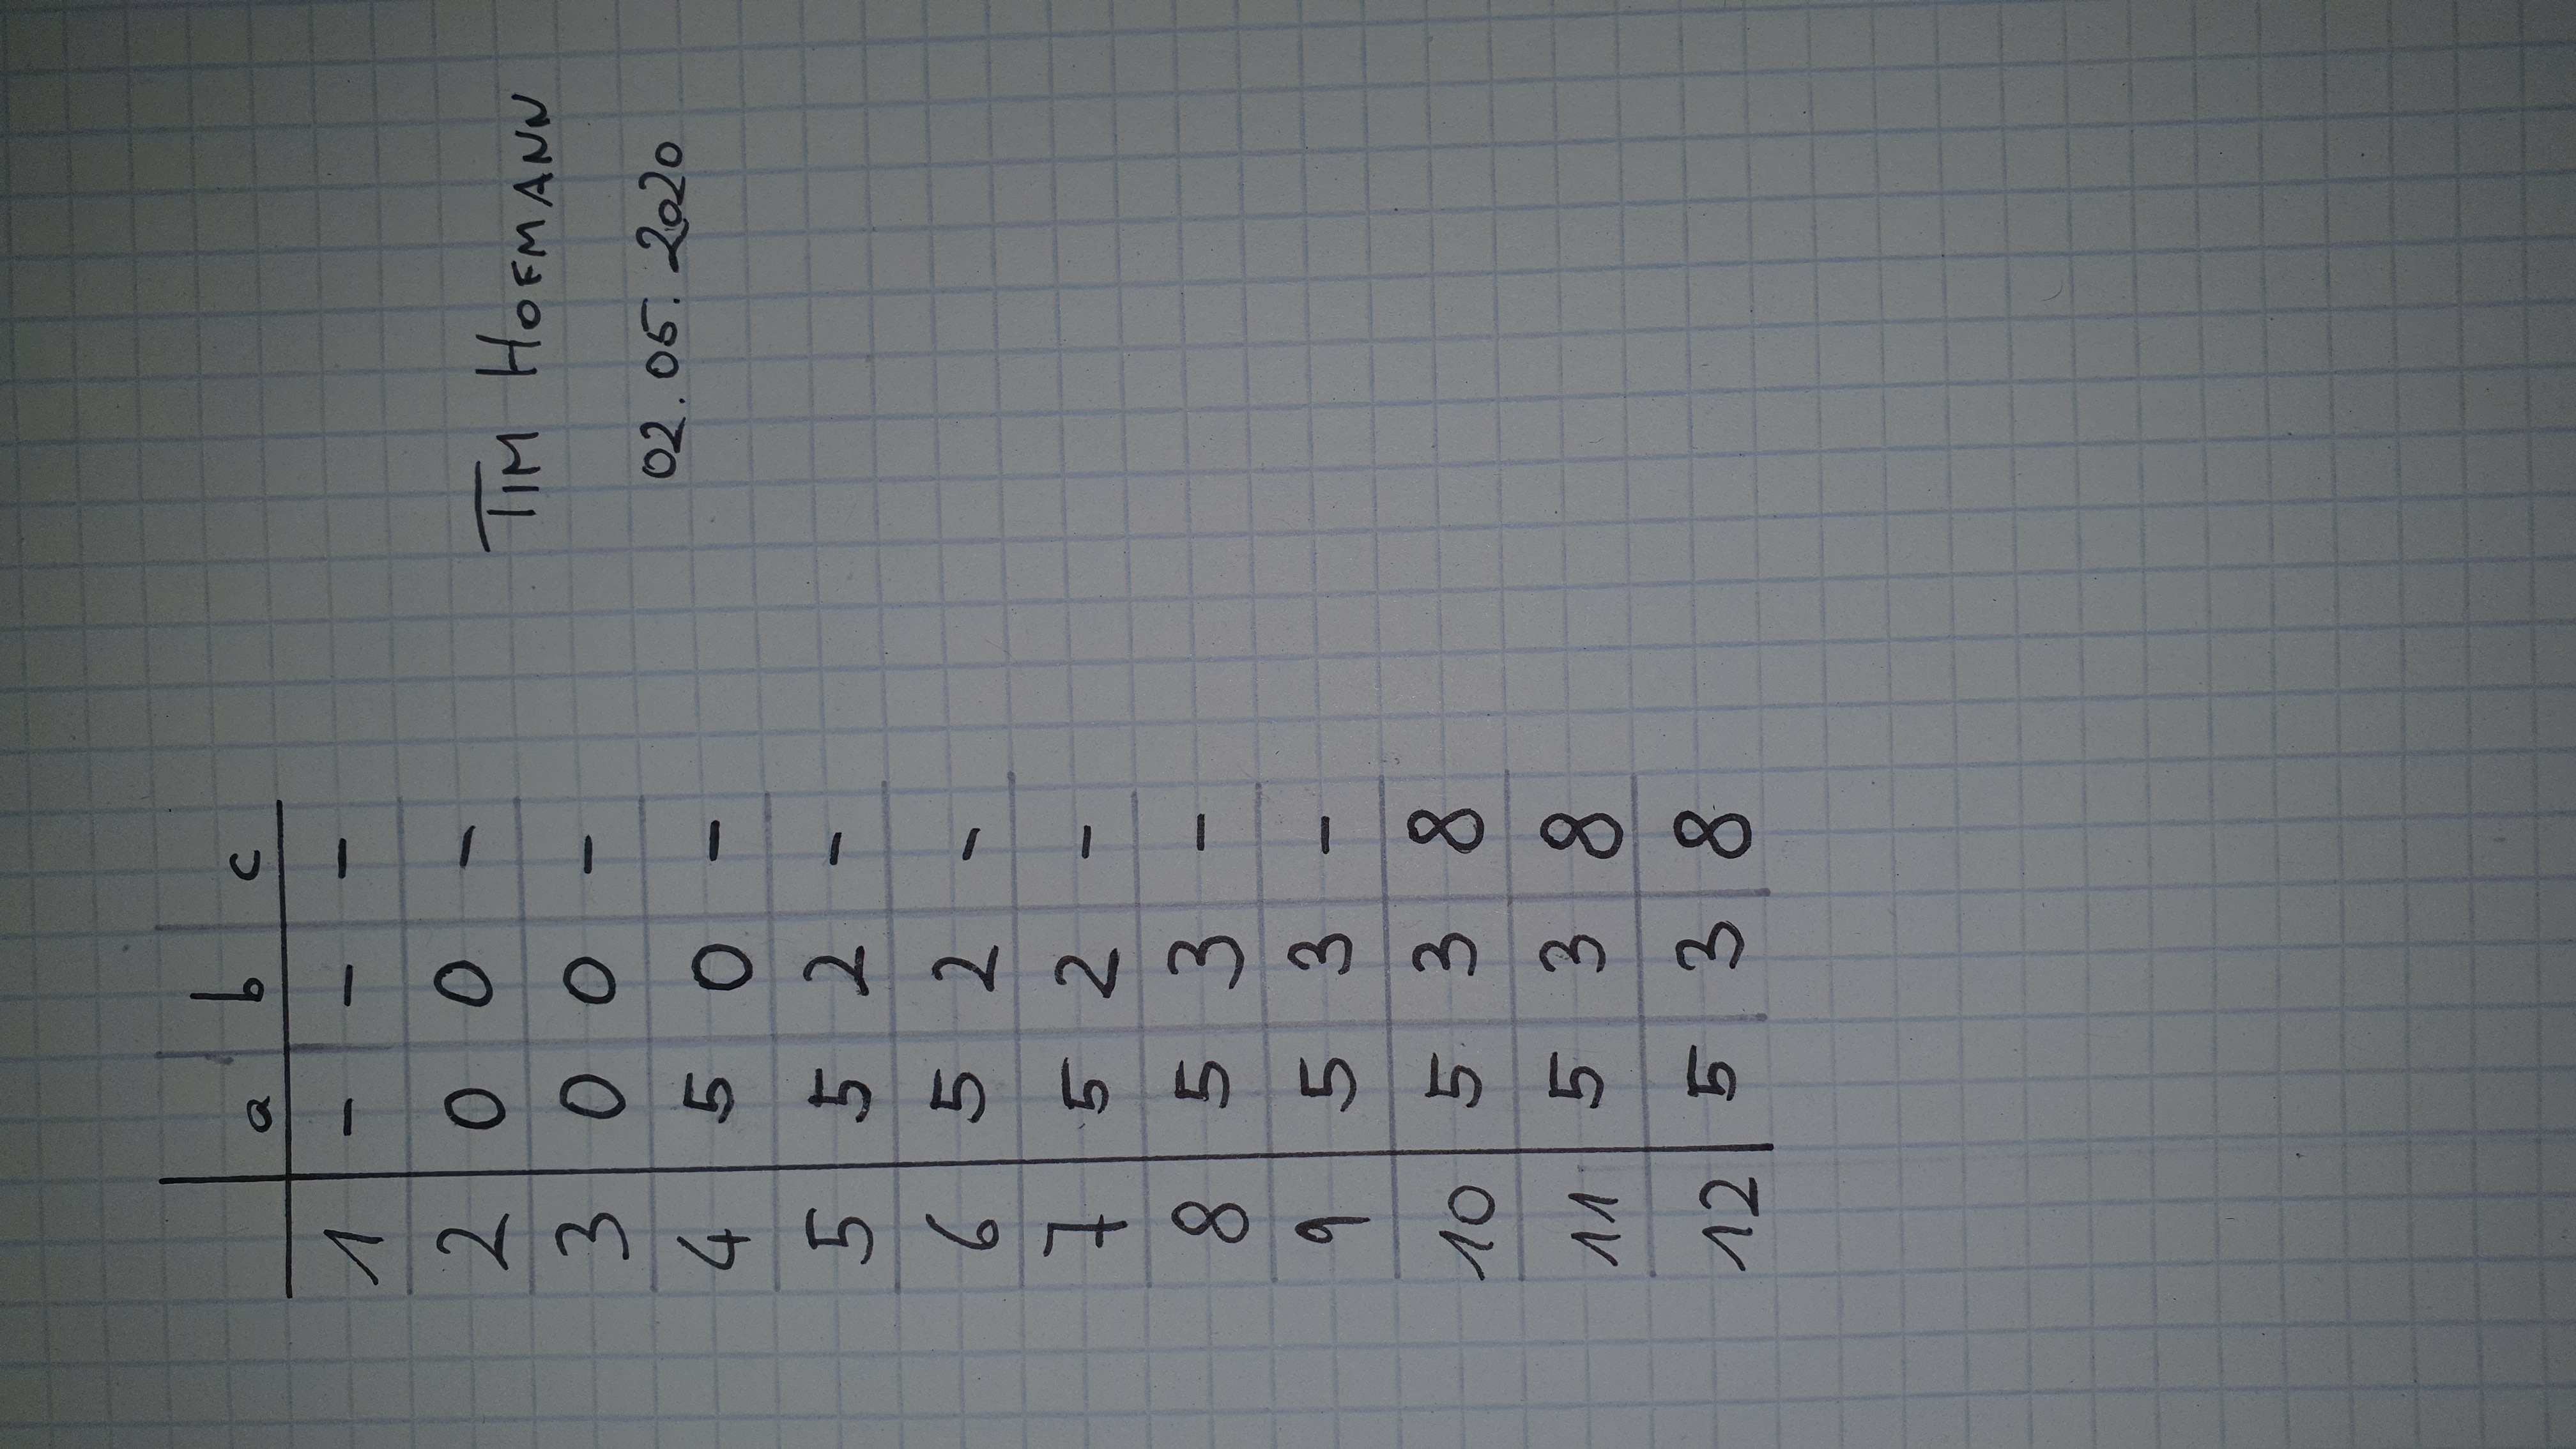 a b c
1 - - -
2 0 0 -
3 0 0 -
4 5 0 -
5 5 2 -
6 5 2 -
7 5 2 -
8 5 3 -
9 5 3 -
10 5 3 8
11 5 3 8
12 5 3 8
TIM HOFMANN
02.05.2020